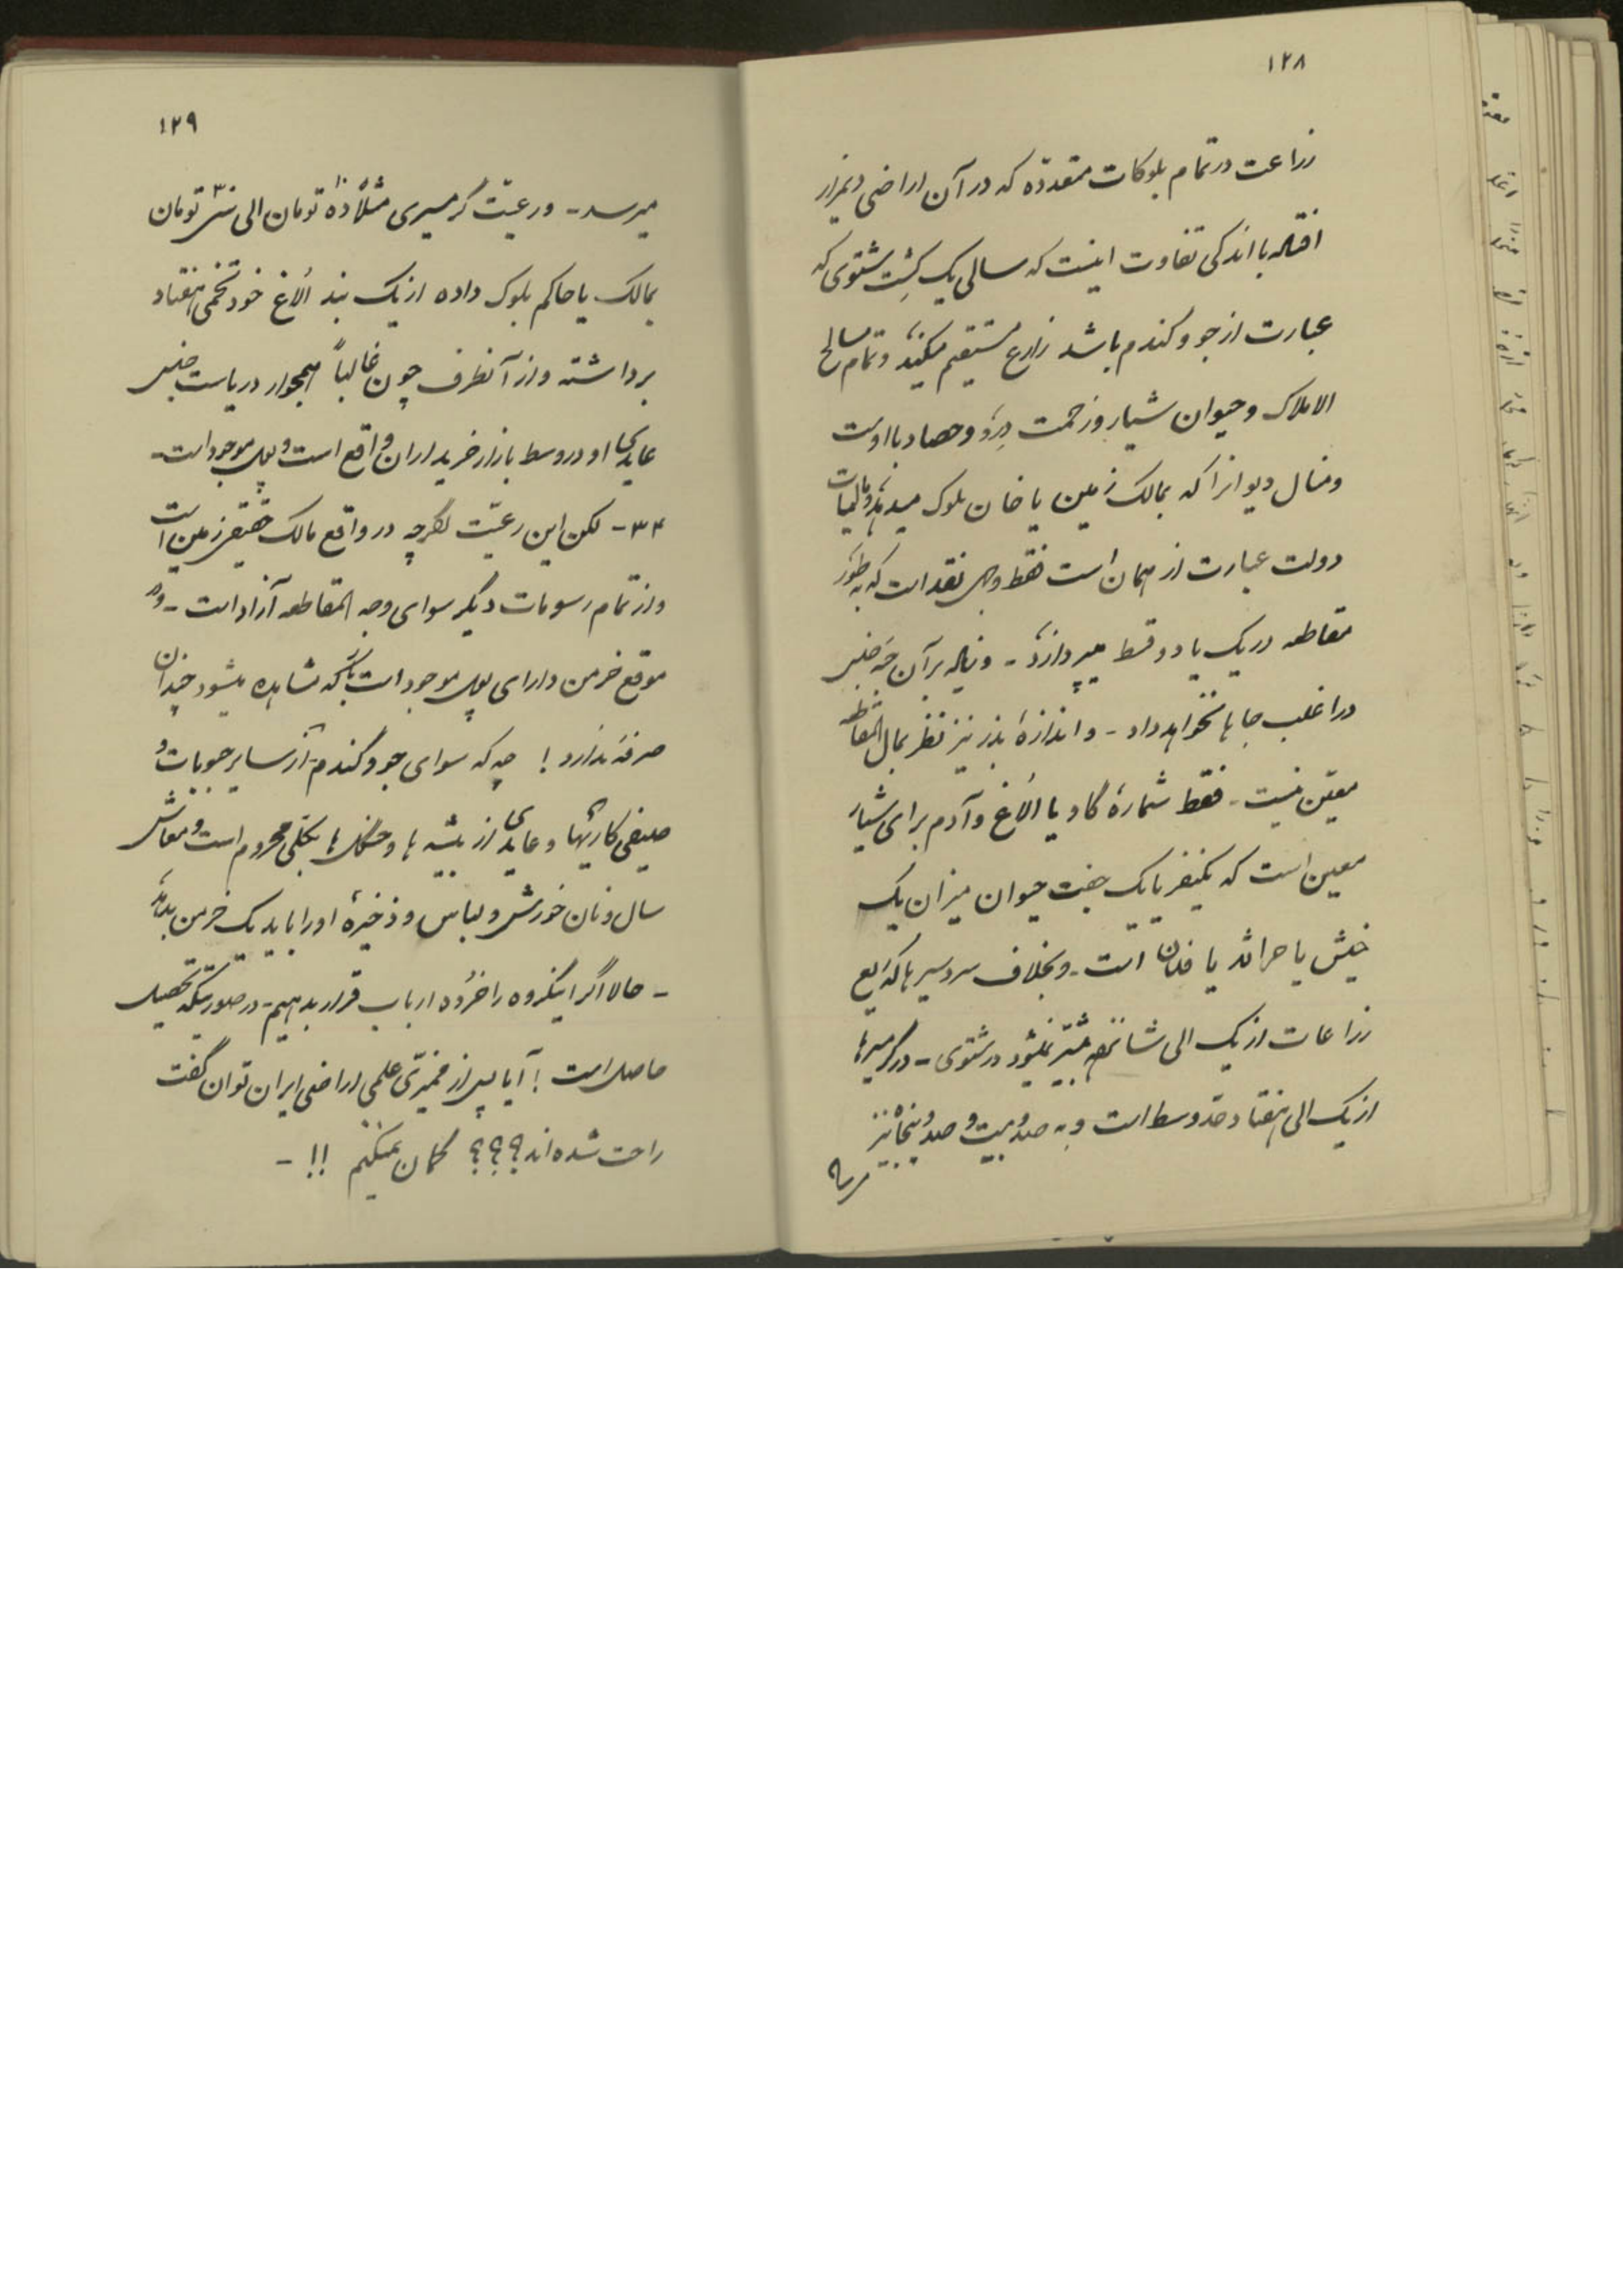 ۱۲۸
زراعت در تمام بلوکات متعدده که در آن اراضی دیمزار
افتاده با اندکی تفاوت اینست که سالی یک کشت شتوی که
عبارت از جو و گندم باشد زارع مستقیم میکند و تمام مصالح
الاملاک و حیوان شیار و زحمت درو و حصاد با اوست
و منال دیوانرا که بمالک زمین یا خان بلوک میدهد و مالیات
دولت عبارت از همان است فقط وجه نقد است که بطور
مقاطعه در یک یا دو قسط میپردازد - و نیاله بر آن جنس
در اغلب جاها نخواهد داد - و اندازهٔ بذر نیز نظر بمال المقاطعه
معیّن نیست - فقط شمارهٔ گاو یا الاغ و آدم برای شیار
معین است که یکنفر یا یک جفت حیوان میزان یک
خیش یا حراثه یا فدان است - و بخلاف سردسیرها که ریع
زراعات از یک الی شانزده بیشتر نمیشود در شتوی - در گرمسیرها
از یک الی هفتاد حدّ وسط است و به صد و بیست و صد و پنجاه نیز
میرسد
۱۲۹
میرسد - و رعیّت گرمسیری مثلاً ده ۱۰ تومان الی سی ۳۰ تومان
بمالک یا حاکم بلوک داده از یک بند الاغ خود تخمی هفتاد
برداشته و از آنطرف چون غالباً همجوار دریاست جنس
عایدی او در وسط بازار خریداران واقع است و پول موجود است -
۳۴ - لکن این رعیّت اگرچه در واقع مالک حقیقی زمین است
و از تمام رسومات دیگر سوای وجه المقاطعه آزاد است - و در
موقع خرمن دارای پول موجود است باز که مشاهده میشود چندان
صرفه ندارد ! چه که سوای جو و گندم از سایر حبوبات و
صیفی کاریها و عایدی از بیشه ها و جنگل ها بکلی محروم است و معاش
سال و نان خورش و لباس و ذخیرهٔ او را باید یک خرمن بدهد
- حالا اگر اینگروه را خرده ارباب قرار بدهیم - در صورتیکه تحصیل
حاصل است ! آیا پس از ممیّزی علمی اراضی ایران توان گفت
راحت شده اند ؟؟؟ گمان نمیکنم !! -